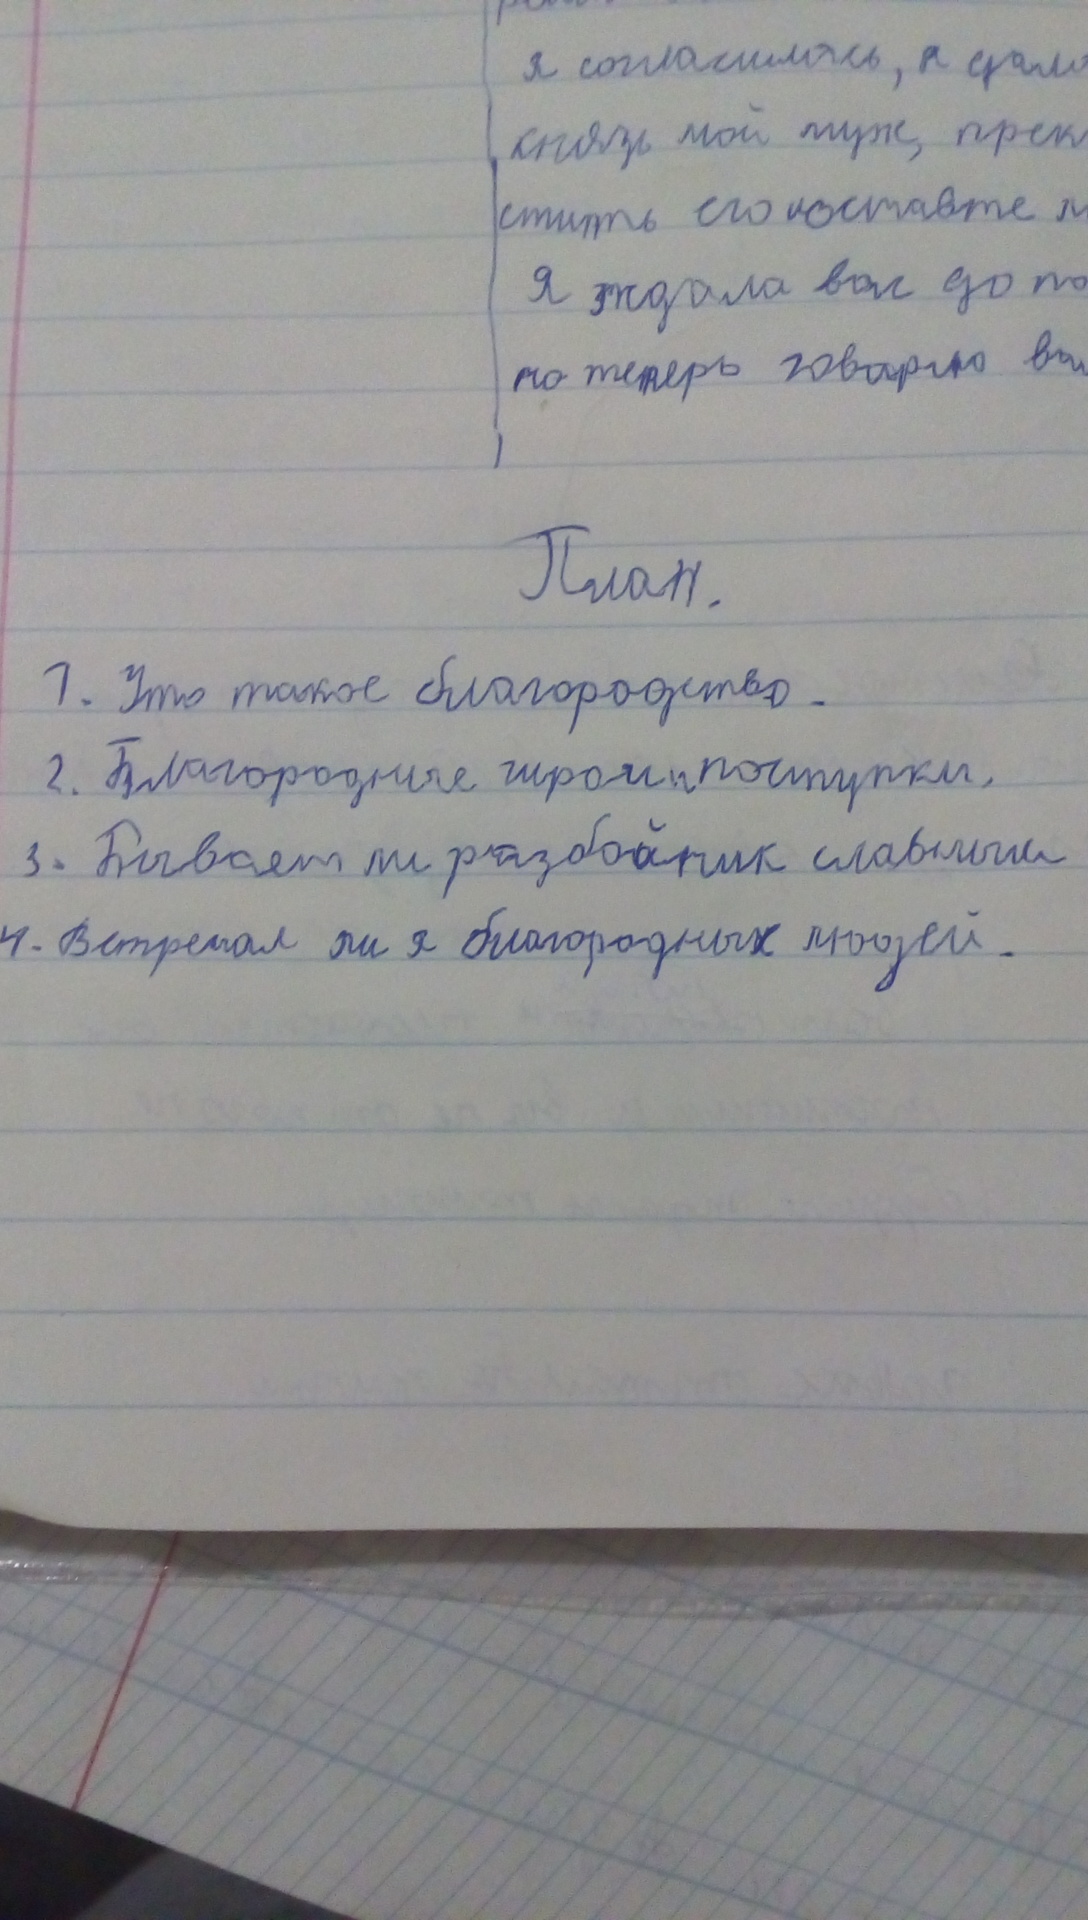 я согласилась, я дала
князь мой муж, прек
стить его оставте м
Я ждала вас до по
но теперь говорю вам
План.
1. Что такое благородство.
2. Благородные герои и поступки.
3. Бывает ли разбойник славным
4. Встречал ли я благородных людей.